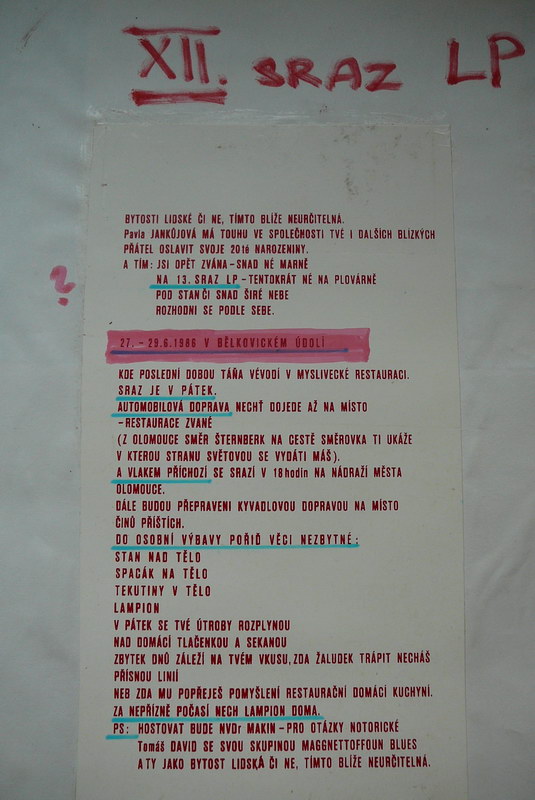 XII. SRAZ LP
BYTOSTI LIDSKÉ ČI NE, TÍMTO BLÍŽE NEURČITELNÁ.
Pavla JANKŮJOVÁ MÁ TOUHU VE SPOLEČNOSTI TVÉ I DALŠÍCH BLÍZKÝCH
PŘÁTEL OSLAVIT SVOJE 20té NAROZENINY.
A TÍM: JSI OPĚT ZVÁNA – SNAD NE MARNĚ
?
NA 13. SRAZ LP – TENTOKRÁT NE NA PLOVÁRNĚ
POD STAN ČI SNAD ŠIRÉ NEBE
ROZHODNI SE PODLE SEBE.
27. – 29.6.1986 V BĚLKOVICKÉM ÚDOLÍ
KDE POSLEDNÍ DOBOU TÁŇA VÉVODÍ V MYSLIVECKÉ RESTAURACI.
SRAZ JE V PÁTEK.
AUTOMOBILOVÁ DOPRAVA NECHŤ DOJEDE AŽ NA MÍSTO
– RESTAURACE ZVANÉ
(Z OLOMOUCE SMĚR ŠTERNBERK NA CESTĚ SMĚROVKA TI UKÁŽE
V KTEROU STRANU SVĚTOVOU SE VYDATI MÁŠ).
A VLAKEM PŘÍCHOZÍ SE SRAZÍ V 18 hodin NA NÁDRAŽÍ MĚSTA
OLOMOUCE.
DÁLE BUDOU PŘEPRAVENI KYVADLOVOU DOPRAVOU NA MÍSTO
ČINŮ PŘÍŠTÍCH.
DO OSOBNÍ VÝBAVY POŘIĎ VĚCI NEZBYTNÉ:
STAN NAD TĚLO
SPACÁK NA TĚLO
TEKUTINY V TĚLO
LAMPION
V PÁTEK SE TVÉ ÚTROBY ROZPLYNOU
NAD DOMÁCÍ TLAČENKOU A SEKANOU
ZBYTEK DNŮ ZÁLEŽÍ NA TVÉM VKUSU, ZDA ŽALUDEK TRÁPIT NECHÁŠ
PŘÍSNOU LINIÍ
NEB ZDA MU POPŘEJEŠ POMYŠLENÍ RESTAURAČNÍ DOMÁCÍ KUCHYNÍ.
ZA NEPŘÍZNĚ POČASÍ NECH LAMPION DOMA.
PS: HOSTOVAT BUDE NVDr MAKIN – PRO OTÁZKY NOTORICKÉ
Tomáš DAVID SE SVOU SKUPINOU MAGGNETTOFFOUN BLUES
A TY JAKO BYTOST LIDSKÁ ČI NE, TÍMTO BLÍŽE NEURČITELNÁ.